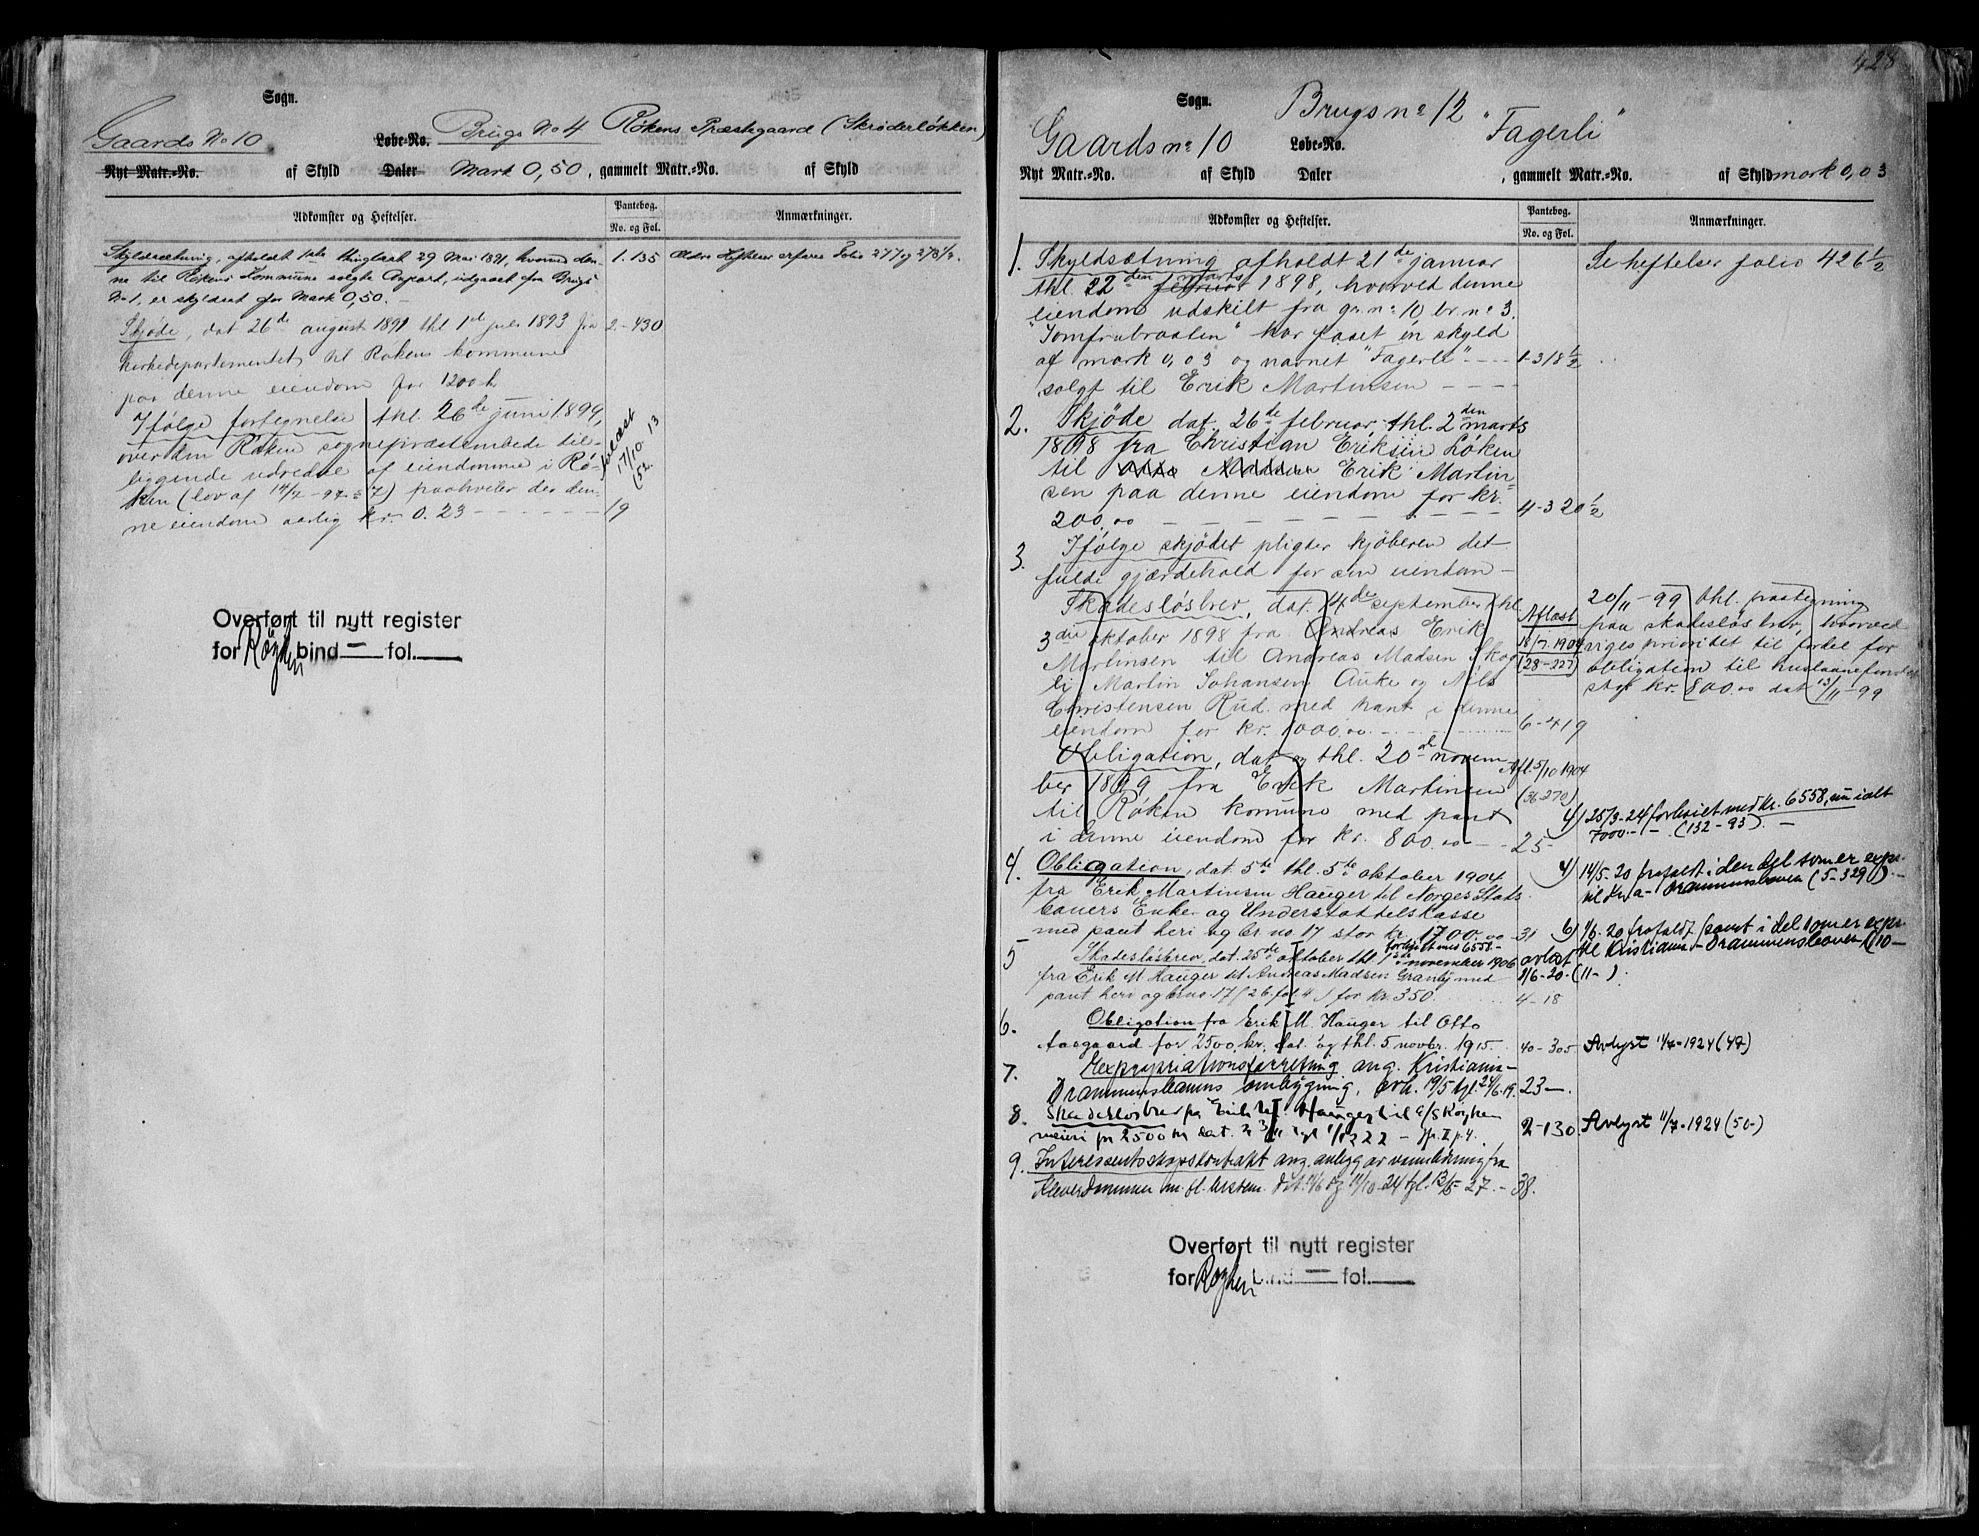 Sogn.
Gaards No 10 Løbe-No. Brugs No 4 Røkens Præstegaard (Skrøderløkken)
Nyt Matr.-No. af Skyld Daler Mark 0,50, gammelt Matr.-No. af Skyld
Adkomster og Heftelser. Pantebog. No. og Fol. Anmærkninger.
Skyldsætning, afholdt thinglæst 29 Mai 1891, hvorved den- 1. 135 Ældre Heftelser erfares Folio 277 og 278 1/2.
ne til Røkens Kommune solgte Anpart, udgaaet fra Brugs
No 1, er skyldsat for Mark 0,50. -
Skjøde, dat 26de august 1891 thl 1ste juli 1893 fra 2-430
kirkedepartementet til Røkens kommune
paa denne eiendom for 1200 kr.
Ifølge fortegnelse thl. 26de juni 1899,
over den Røken sognepræstembede til-
liggende udredsler af eiendomme i Rø-
ken (lov af 14/7 - 97 § 7) paahviler der den-
ne eiendom aarlig kr. 0.23 - - - - 19
17/10. 13
(52.
Overført til nytt register
for Røyken bind — fol.
428
Sogn. Brugs no 12 "Fagerli"
Gaards no 10 Løbe-No.
Nyt Matr.-No. af Skyld Daler , gammelt Matr.-No. af Skyld mark 0,03
Adkomster og Heftelser. Pantebog. No. og Fol. Anmærkninger.
1. Skyldsætning afholdt 21de januar Se heftelser folio 426 1/2
thl. 22den februar marts 1898, hvorved denne
eiendom udskilt fra gr. no 10, br. no 3.
"Jomfrubraaten" har faaet en skyld
af mark 0,03 og navnet "Fagerli" - - - 1-318 1/2
solgt til Erik Martinsen - - - -
2. Skjöde dat. 26de februar, thl. 2den marts
1898 fra Christian Eriksen Løken
til Erik Martin-
sen paa denne eiendom for kr.
200,00 - - - - - - 4-320 1/2
3. Ifølge skjödet pligter kjöberen det
fulde gjærdehold for sin eiendom -
Skadesløsbrev, dat. 14de september thl. Aflæst 20/11-99 thl. paategning
3die oktober 1898 fra Andreas Erik 18/7. 1904 paa skadesløsbrev, hvorved
Martinsen til Andreas Madsen Skog- (28-227) viges prioritet til fordel for
li, Martin Johansen Auke og Nils obligation til huslaanefondet
Christensen Rud med pant i denne stor kr. 800.00 dat 13/11-99
eiendom for kr. 1000.00. - 6-419
Obligation, dat og thl. 20de novem- Afl. 5/10 1904
ber 1899 fra Erik Martinsen (36-270)
til Røken komune med pant 4) 25/3-24 forhøiet med kr. 6558, nu ialt
i denne eiendom for kr. 800.00 - - 25- 7000.- - (132-93). -
4. Obligation, dat. 5te thl. 5te oktober 1904 4) 14/5-20 frafaldt i den del som er expr.
fra Erik Martinsen Hauger til Norges Stats- til Kr.a- Drammensbanen (5-329). -
baners Enke- og Understøttelseskasse
med pant heri og br. no 17 stor kr. 1700.00 - 31 6) 1/6-20 frafaldt pant i del som er expr.
5 Skadesløsbrev, dat. 25de oktober thl 1ste november 1906 avlæst til Kristiania-Drammensbanen (10-
fra Erik M. Hauger til Andreas Madsen Granby med 1/6-20-(11-).
pant heri og br no. 17 (26. fol 4) for kr. 350. 4-18
6. Obligation fra Erik M. Hauger til Otto
Aasgaard for 2500 kr. dat. og thl. 5 novbr. 1915. 40-305 Avlyst 11/7-1924 (47)
7. Expropriationsforretning ang. Kristiania-
Drammensbanens ombygning, avh. 19/5 tgl. 24/6.19. 23-.
8. Skadesløsbrev fra Erik M. Hauger til A/S Røyken
meieri for 2500 kr dat. - 2-130. Avlyst 11/7-1924 (50-)
9. Interessentskapskontrakt ang. anlegg av vannledning fra
Kleverdammen m. fl. bestem. 11/10-24 tgl. 13/5-27. - 38.
Overført til nytt register
for Røyken bind — fol.